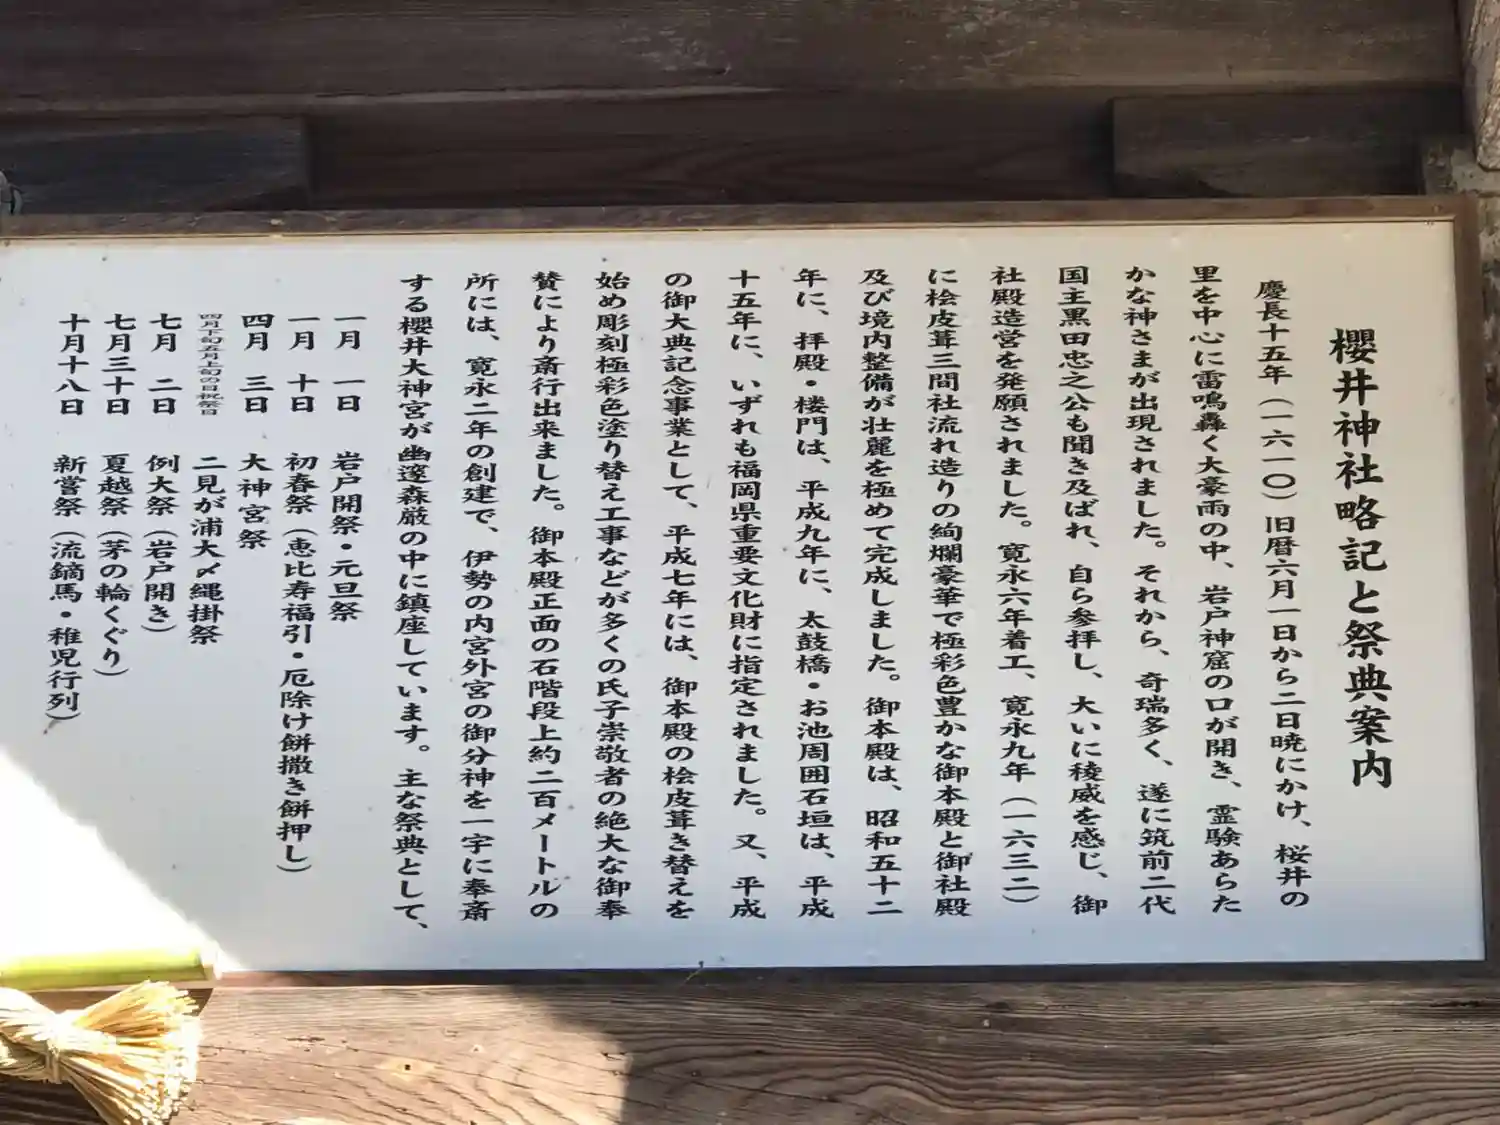 櫻井神社略記と祭典案内
慶長十五年(一六一〇)旧暦六月一日から二日暁にかけ、桜井の
里を中心に雷鳴轟く大豪雨の中、岩戸神窟の口が開き、霊験あらた
かな神さまが出現されました。それから、奇瑞多く、遂に筑前二代
国主黒田忠之公も聞き及ばれ、自ら参拝し、大いに稜威を感じ、御
社殿造営を発願されました。寛永六年着工、寛永九年(一六三二)
に桧皮葺三間社流れ造りの絢爛豪華で極彩色豊かな御本殿と御社殿
及び境内整備が壮麗を極めて完成しました。御本殿は、昭和五十二
年に、拝殿・楼門は、平成九年に、太鼓橋・お池周囲石垣は、平成
十五年に、いずれも福岡県重要文化財に指定されました。又、平成
の御大典記念事業として、平成七年には、御本殿の桧皮葺き替えを
始め彫刻極彩色塗り替え工事などが多くの氏子崇敬者の絶大な御奉
賛により斎行出来ました。御本殿正面の石階段上約二百メートルの
所には、寛永二年の創建で、伊勢の内宮外宮の御分神を一宇に奉斎
する櫻井大神宮が幽邃森厳の中に鎮座しています。主な祭典として、
一月 一日 岩戸開祭・元旦祭
一月 十日 初春祭(恵比寿福引・厄除け餅撒き餅押し)
四月 三日 大神宮祭
四月下旬五月上旬の日祝祭日 二見が浦大〆縄掛祭
七月 二日 例大祭(岩戸開き)
七月三十日 夏越祭(茅の輪くぐり)
十月十八日 新嘗祭(流鏑馬・稚児行列)